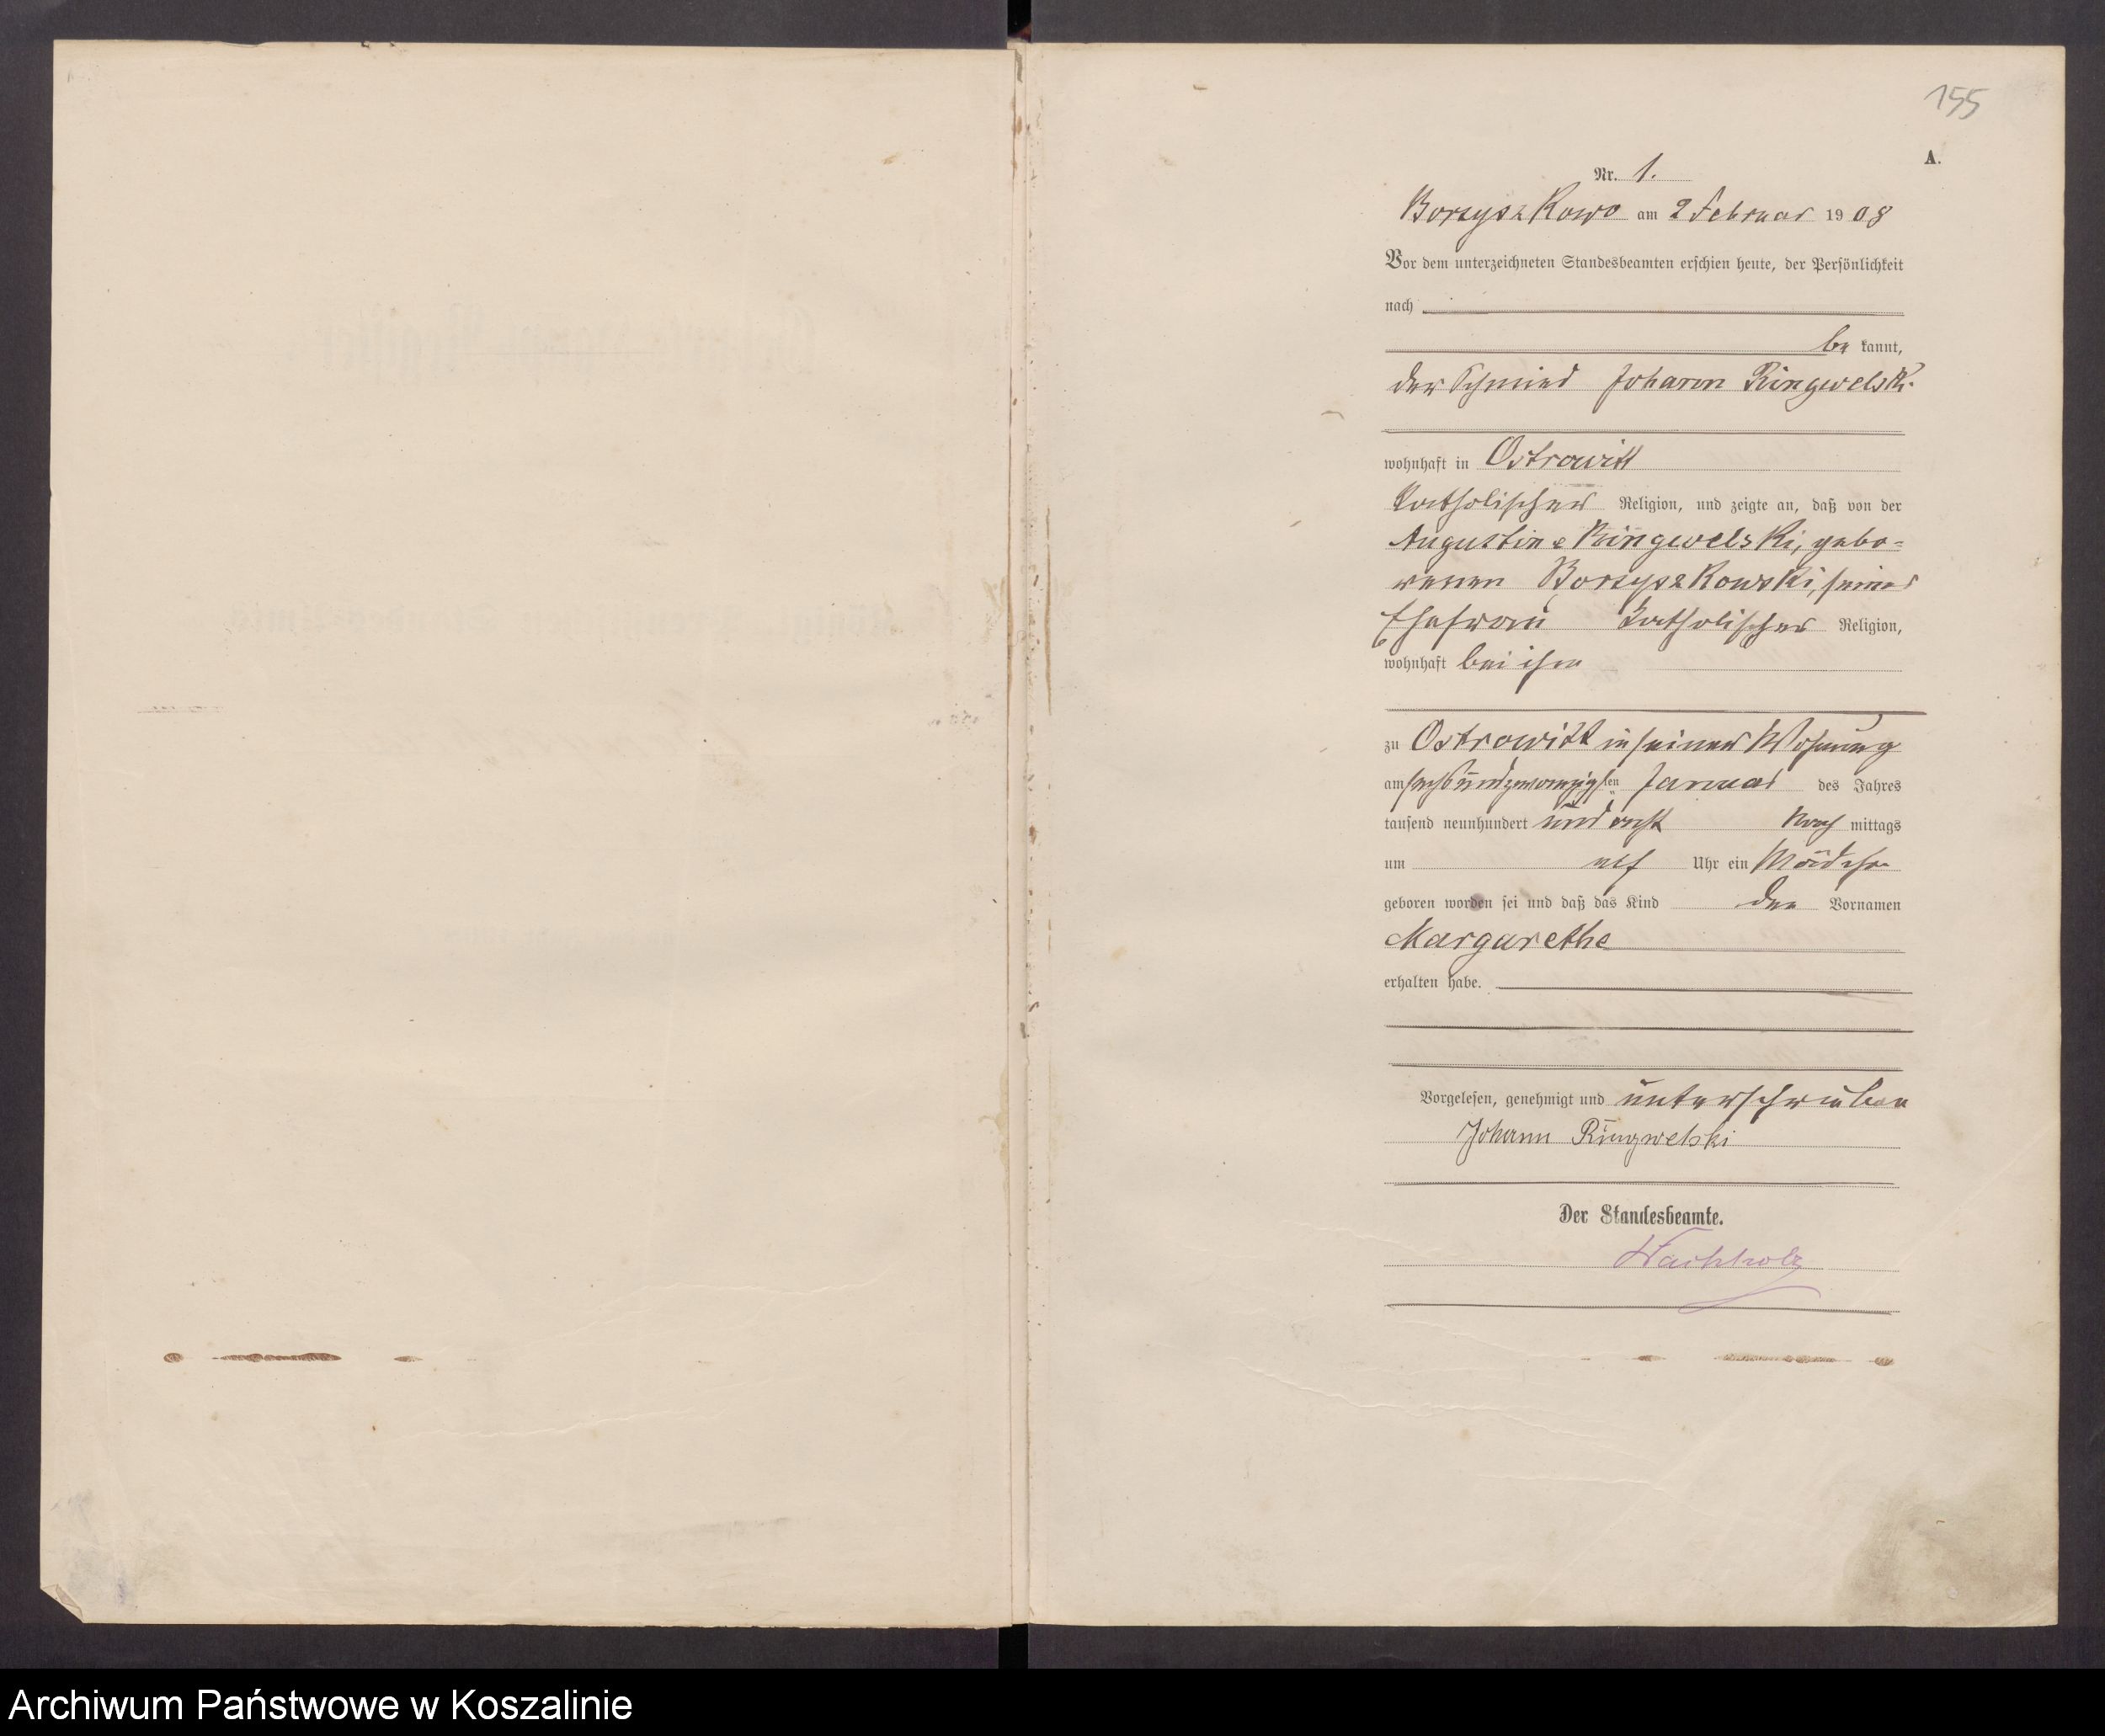 155
A.
Nr. 1.
Borzyszkowo am 2 Februar 1908
Vor dem unterzeichneten Standesbeamten erschien heute, der Persönlichkeit
nach
be kannt,
der Schmied Johann Ringwelski
wohnhaft in Ostrowitt
katholischer Religion, und zeigte an, daß von der
Augustine Ringwelski, gebo-
renen Borzyszkowski, seiner
Ehefrau katholischer Religion,
wohnhaft bei ihm
zu Ostrowitt in seiner Wohnung
am sechsundzwanzigsten Januar des Jahres
tausend neunhundert und acht Nach mittags
um elf Uhr ein Mädchen
geboren worden sei und daß das Kind den Vornamen
Margarethe
erhalten habe.
Vorgelesen, genehmigt und unterschrieben
Johann Ringwelski
Der Standesbeamte.
Wachholz
Archiwum Państwowe w Koszalinie